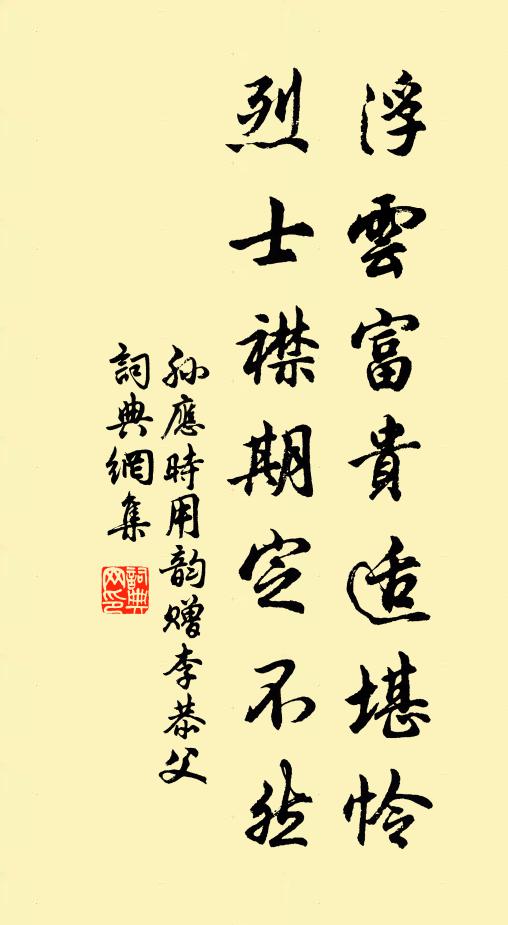 浮雲富貴适堪怜
烈士襟期定不然
孙應時用韵赠李恭父
詞典網集
詞典网印